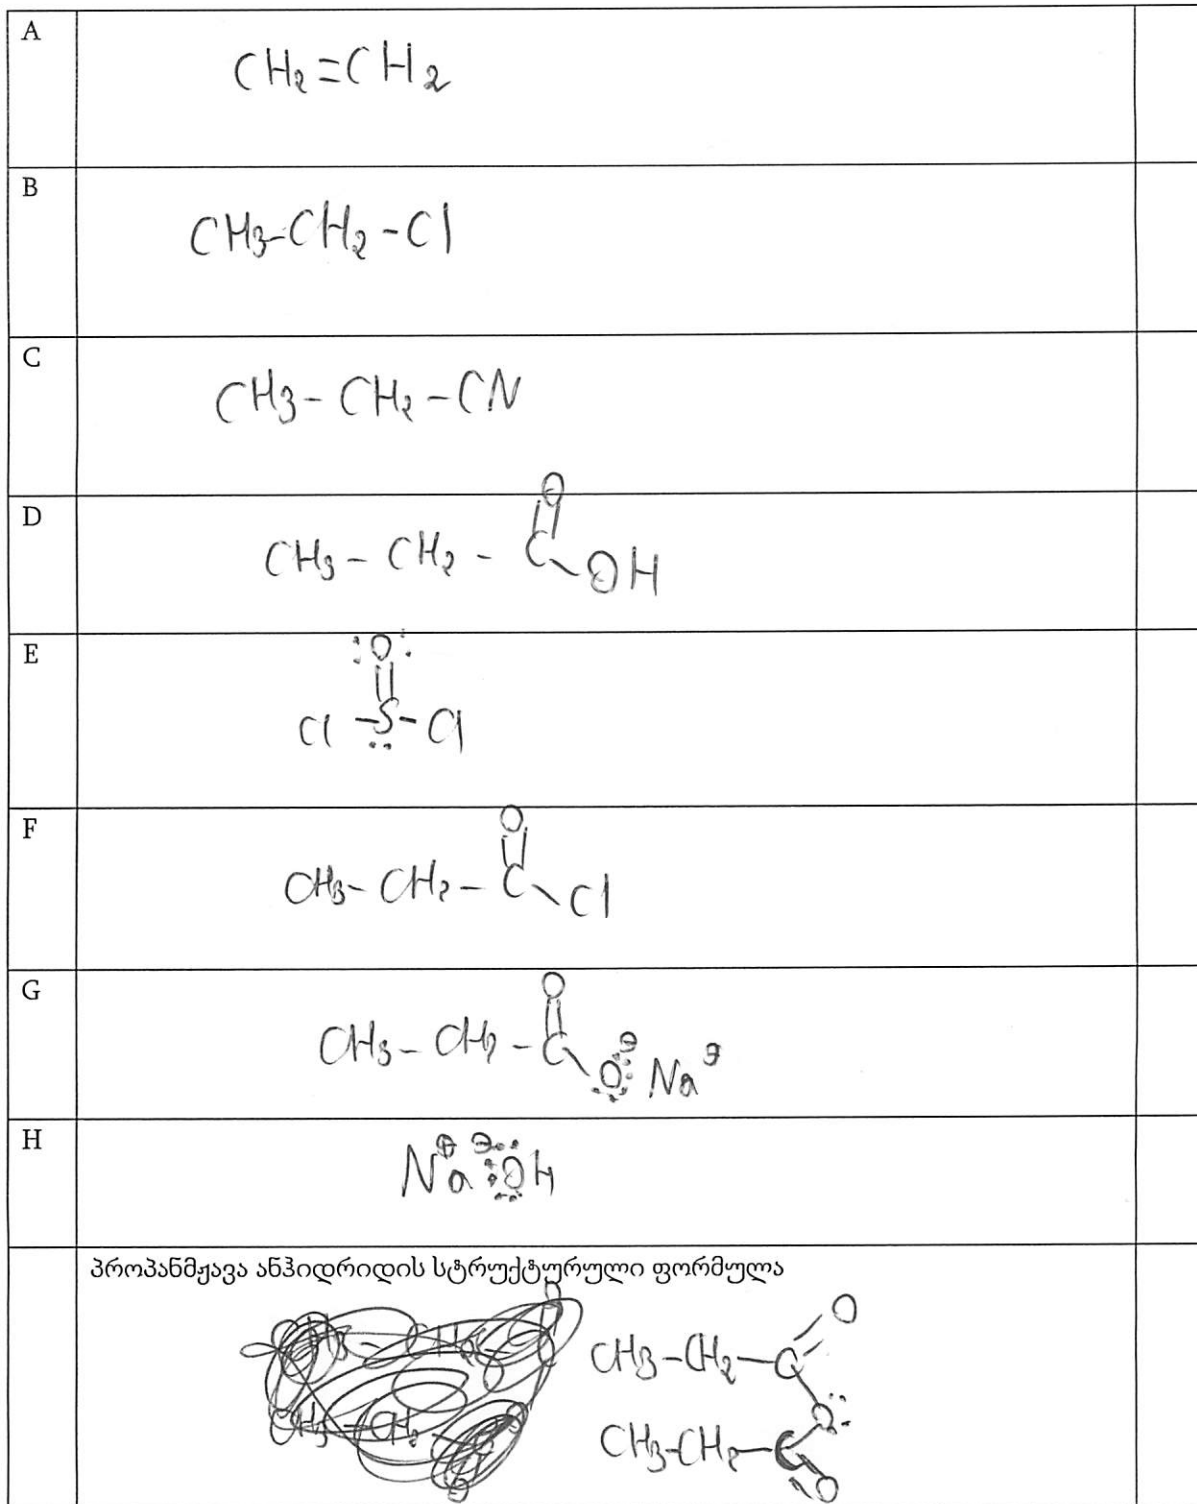 A
CH2=CH2
B
CH3-CH2-Cl
C
CH3-CH2-CN
D
O
CH3-CH2-C
OH
E
O
Cl-S-Cl
F
O
CH3-CH2-C
Cl
G
O
CH3-CH2-C
O⊖ Na
H
Na⊕ ⊖OH
პროპანმჟავა ანჰიდრიდის სტრუქტურული ფორმულა
O
CH3-CH2-C
O
CH3-CH2-C
O